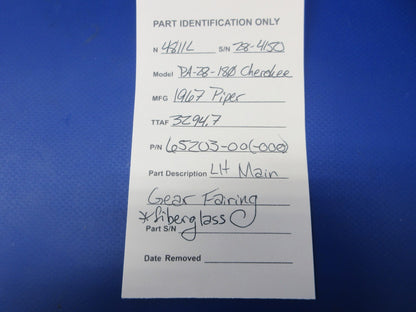 PART IDENTIFICATION ONLY
N 4811L S/N 28-4150
Model PA-28-180 Cherokee
MFG 1967 Piper
TTAF 3294.7
P/N 65203-00(-000)
Part Description LH Main
Gear Fairing
*fiberglass
Part S/N
Date Removed